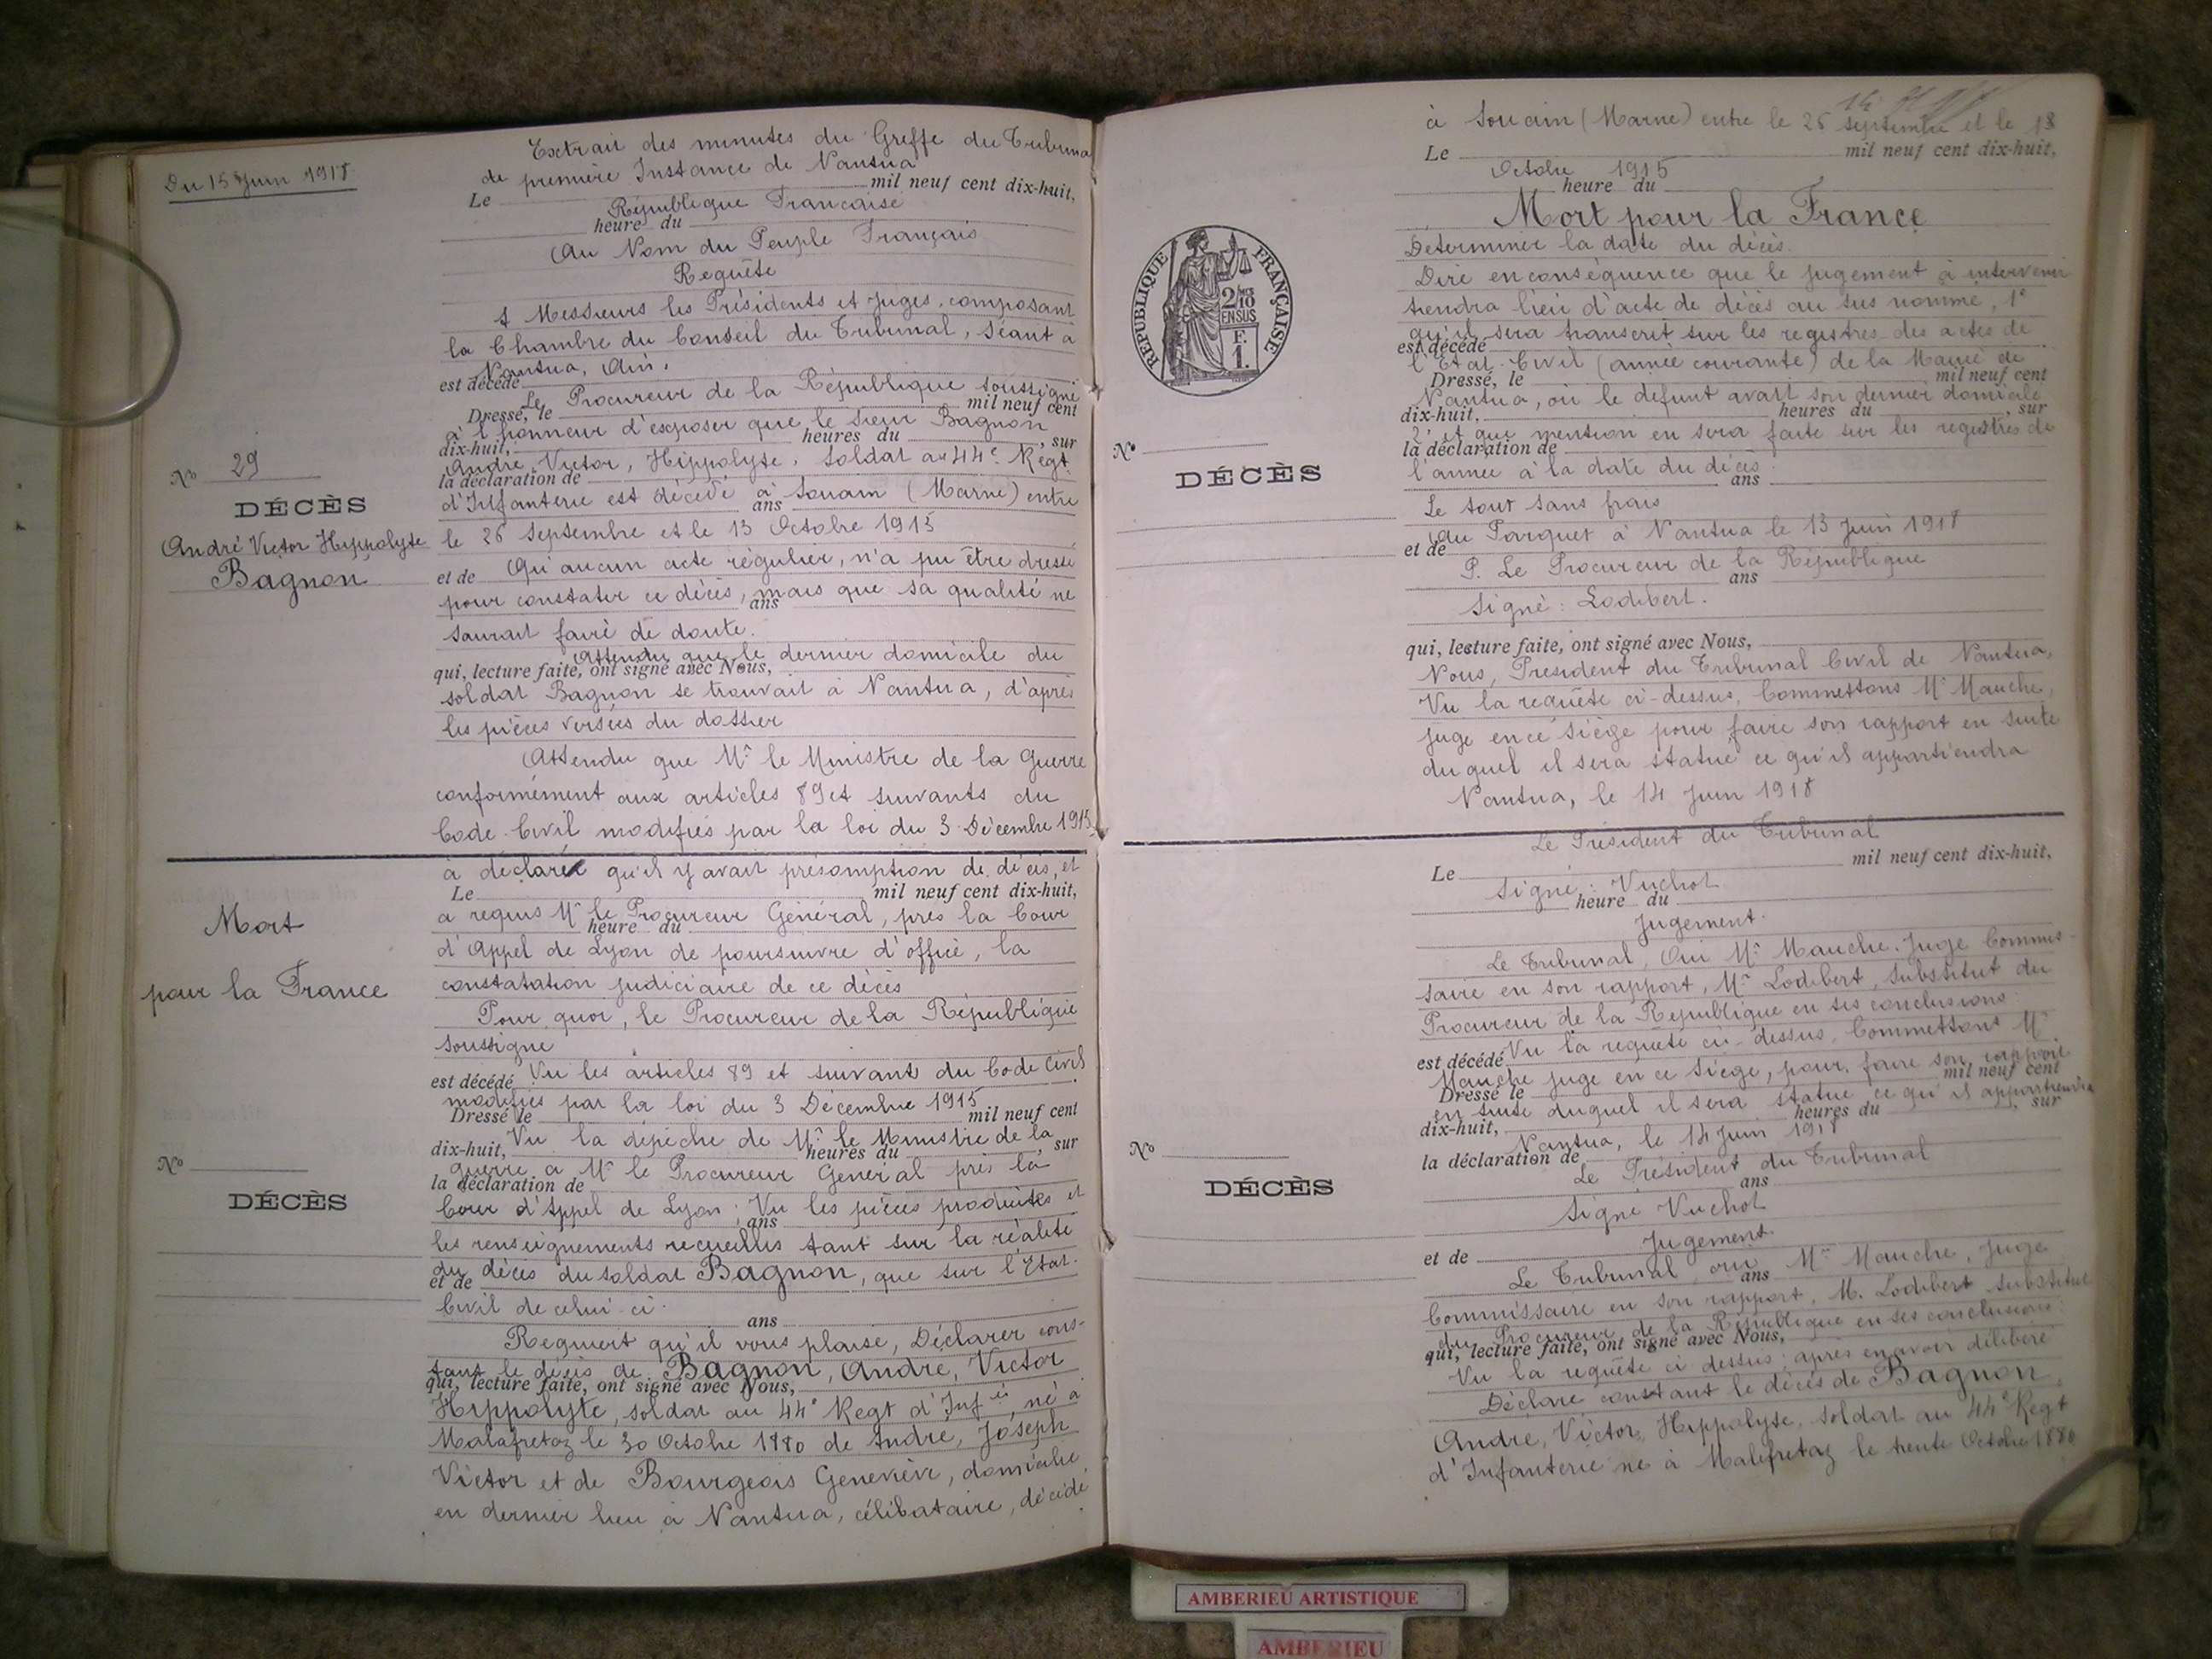 Du 15 Juin 1918
Extrait des minutes du Greffe du Tribunal
de première Instance de Nantua
Le mil neuf cent dix-huit,
République Française
heure du
Au Nom du Peuple Français
Requête
A Messieurs les Présidents et Juges, composant
la Chambre du Conseil du Tribunal, séant à
Nantua, Ain,
est décédé
Le Procureur de la République soussigné
Dressé, le mil neuf cent
à l'honneur d'exposer que le sieur Bagnon
dix-huit, heures du , sur
André, Victor, Hippolyte, soldat au 44e Regt
la déclaration de
d'Infanterie est décédé à Souain (Marne) entre
ans
le 26 Septembre et le 13 Octobre 1915
et de Qu'aucun acte régulier, n'a pu être dressé
pour constater ce décès, mais que sa qualité ne
ans
saurait faire de doute.
Attendu que le dernier domicile du
qui, lecture faite, ont signé avec Nous,
soldat Bagnon se trouvait à Nantua, d'après
les pièces versées du dossier
Attendu que Mr le Ministre de la Guerre
conformément aux articles 89 et suivants du
Code Civil modifiés par la loi du 3 Décembre 1915
No 29
DÉCÈS
André Victor Hippolyte
Bagnon
à déclaré qu'il y avait présomption de décès, et
Le mil neuf cent dix-huit,
a requis Mr le Procureur Général, près la Cour
heure du
d'Appel de Lyon de poursuivre d'office, la
constatation judiciaire de ce décès
Pour quoi, le Procureur de la République
soussigné
est décédé Vu les articles 89 et suivant du Code Civil
modifiés par la loi du 3 Décembre 1915
Dressé le mil neuf cent
dix-huit, Vu la dépêche de Mr le Ministre de la
heures du , sur
guerre a Mr le Procureur Général près la
la déclaration de
Cour d'Appel de Lyon; Vu les pièces produites et
ans
les renseignements recueillis tant sur la réalité
du décès du soldat Bagnon, que sur l'Etat
et de
Civil de celui-ci.
ans
Requiert qu'il vous plaise, Déclarer cons-
tant le décès de Bagnon, André, Victor
qui, lecture faite, ont signé avec Nous,
Hippolyte, soldat au 44e Regt d'Infie, né à
Malafretaz le 30 Octobre 1880 de André, Joseph
Victor et de Bourgeois Geneviève, domicilié
en dernier lieu à Nantua, célibataire, décédé
Mort
pour la France
No
DÉCÈS
à Souain (Marne) entre le 26 septembre et le 13
Le mil neuf cent dix-huit,
Octobre 1915
heure du
Mort pour la France
Déterminer la date du décès.
Dire en conséquence que le jugement à intervenir
tiendra lieu d'acte de décès au sus nommé, 1e
qu'il sera transcrit sur les registres des actes de
est décédé
l'Etat-Civil (année courante) de la Mairie de
Dressé, le mil neuf cent
Nantua, où le defunt avait son dernier domicile
dix-huit, heures du , sur
2e et que mention en sera faite sur les registres de
la déclaration de
l'année à la date du décès.
ans
Le tout sans frais
Au Parquet à Nantua le 13 Juin 1918
et de
P. Le Procureur de la République
ans
Signé: Lodibert.
qui, lecture faite, ont signé avec Nous,
Nous, President du Tribunal Civil de Nantua,
Vu la requête ci-dessus, Commettons Mr Mauche,
juge en ce siège pour faire son rapport en suite
duquel il sera statué ce qu'il appartiendra
Nantua, le 14 Juin 1918
RÉPUBLIQUE FRANÇAISE
2/10
EN SUS
F.
1.
No
DÉCÈS
Le Président du Tribunal
Le mil neuf cent dix-huit,
Signé: Vuchot
heure du
Jugement.
Le Tribunal, Oui Mr Mauche, Juge Commis-
saire en son rapport, Mr Lodibert, substitut du
Procureur de la République en ses conclusions
est décédé Vu la requête ci-dessus, Commettons Mr
Mauche juge en ce siège, pour faire son rapport
Dressé le mil neuf cent
en suite duquel il sera statué ce qu'il appartiendra
dix-huit, heures du , sur
Nantua, le 14 Juin 1918
la déclaration de
Le Président du Tribunal
ans
Signé Vuchot
Jugement.
et de
Le Tribunal, oui Mr Mauche, Juge
ans
Commissaire en son rapport, M. Lodibert substitut
du Procureur de la République en ses conclusions:
qui, lecture faite, ont signé avec Nous,
Vu la requête ci dessus; après en avoir délibéré
Déclare constant le décès de Bagnon,
André, Victor, Hippolyte, soldat au 44e Regt
d'Infanterie né à Malefretaz le trente Octobre 1880
No
DÉCÈS
AMBERIEU ARTISTIQUE
AMBERIEU